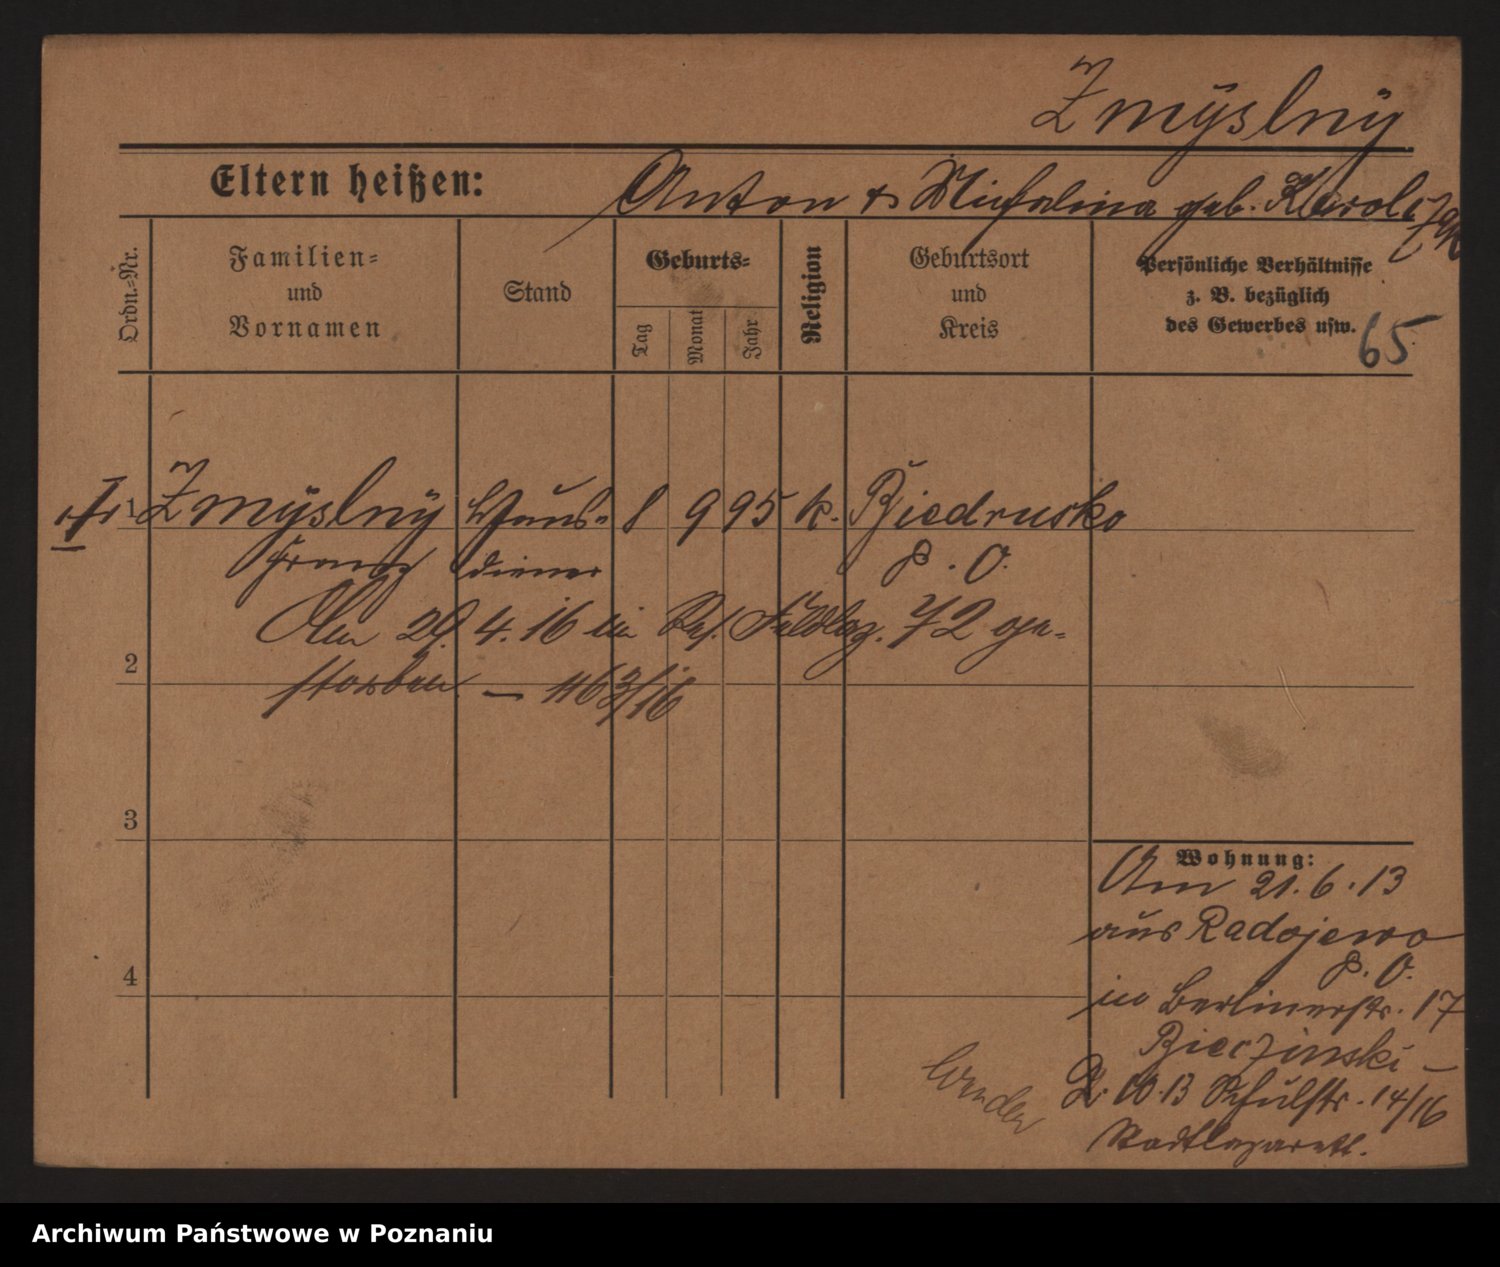 Zmÿslnÿ
Eltern heißen: Anton & Michalina geb. Karolczak
Ordn.-Nr.
Familien- und Vornamen
Stand
Geburts-
Tag
Monat
Jahr
Religion
Geburtsort und Kreis
Persönliche Verhältnisse
z. B. bezüglich
des Gewerbes usw.
65
1 Zmÿslnÿ Haus- 8 9 95 k. Biedrusko
Franz diener P. O.
Am 29. 4. 16 im Res. Feldlaz. 72 ge-
2
storben. — 1163/16
3
4
Wohnung:
Am 21. 6. 13
aus Radojewo
P. O.
in Berlinerstr. 17
Bieczinski —
2. 10. 13 Schulstr. 14/16
Stadtlazarett.
Wenden
Archiwum Państwowe w Poznaniu